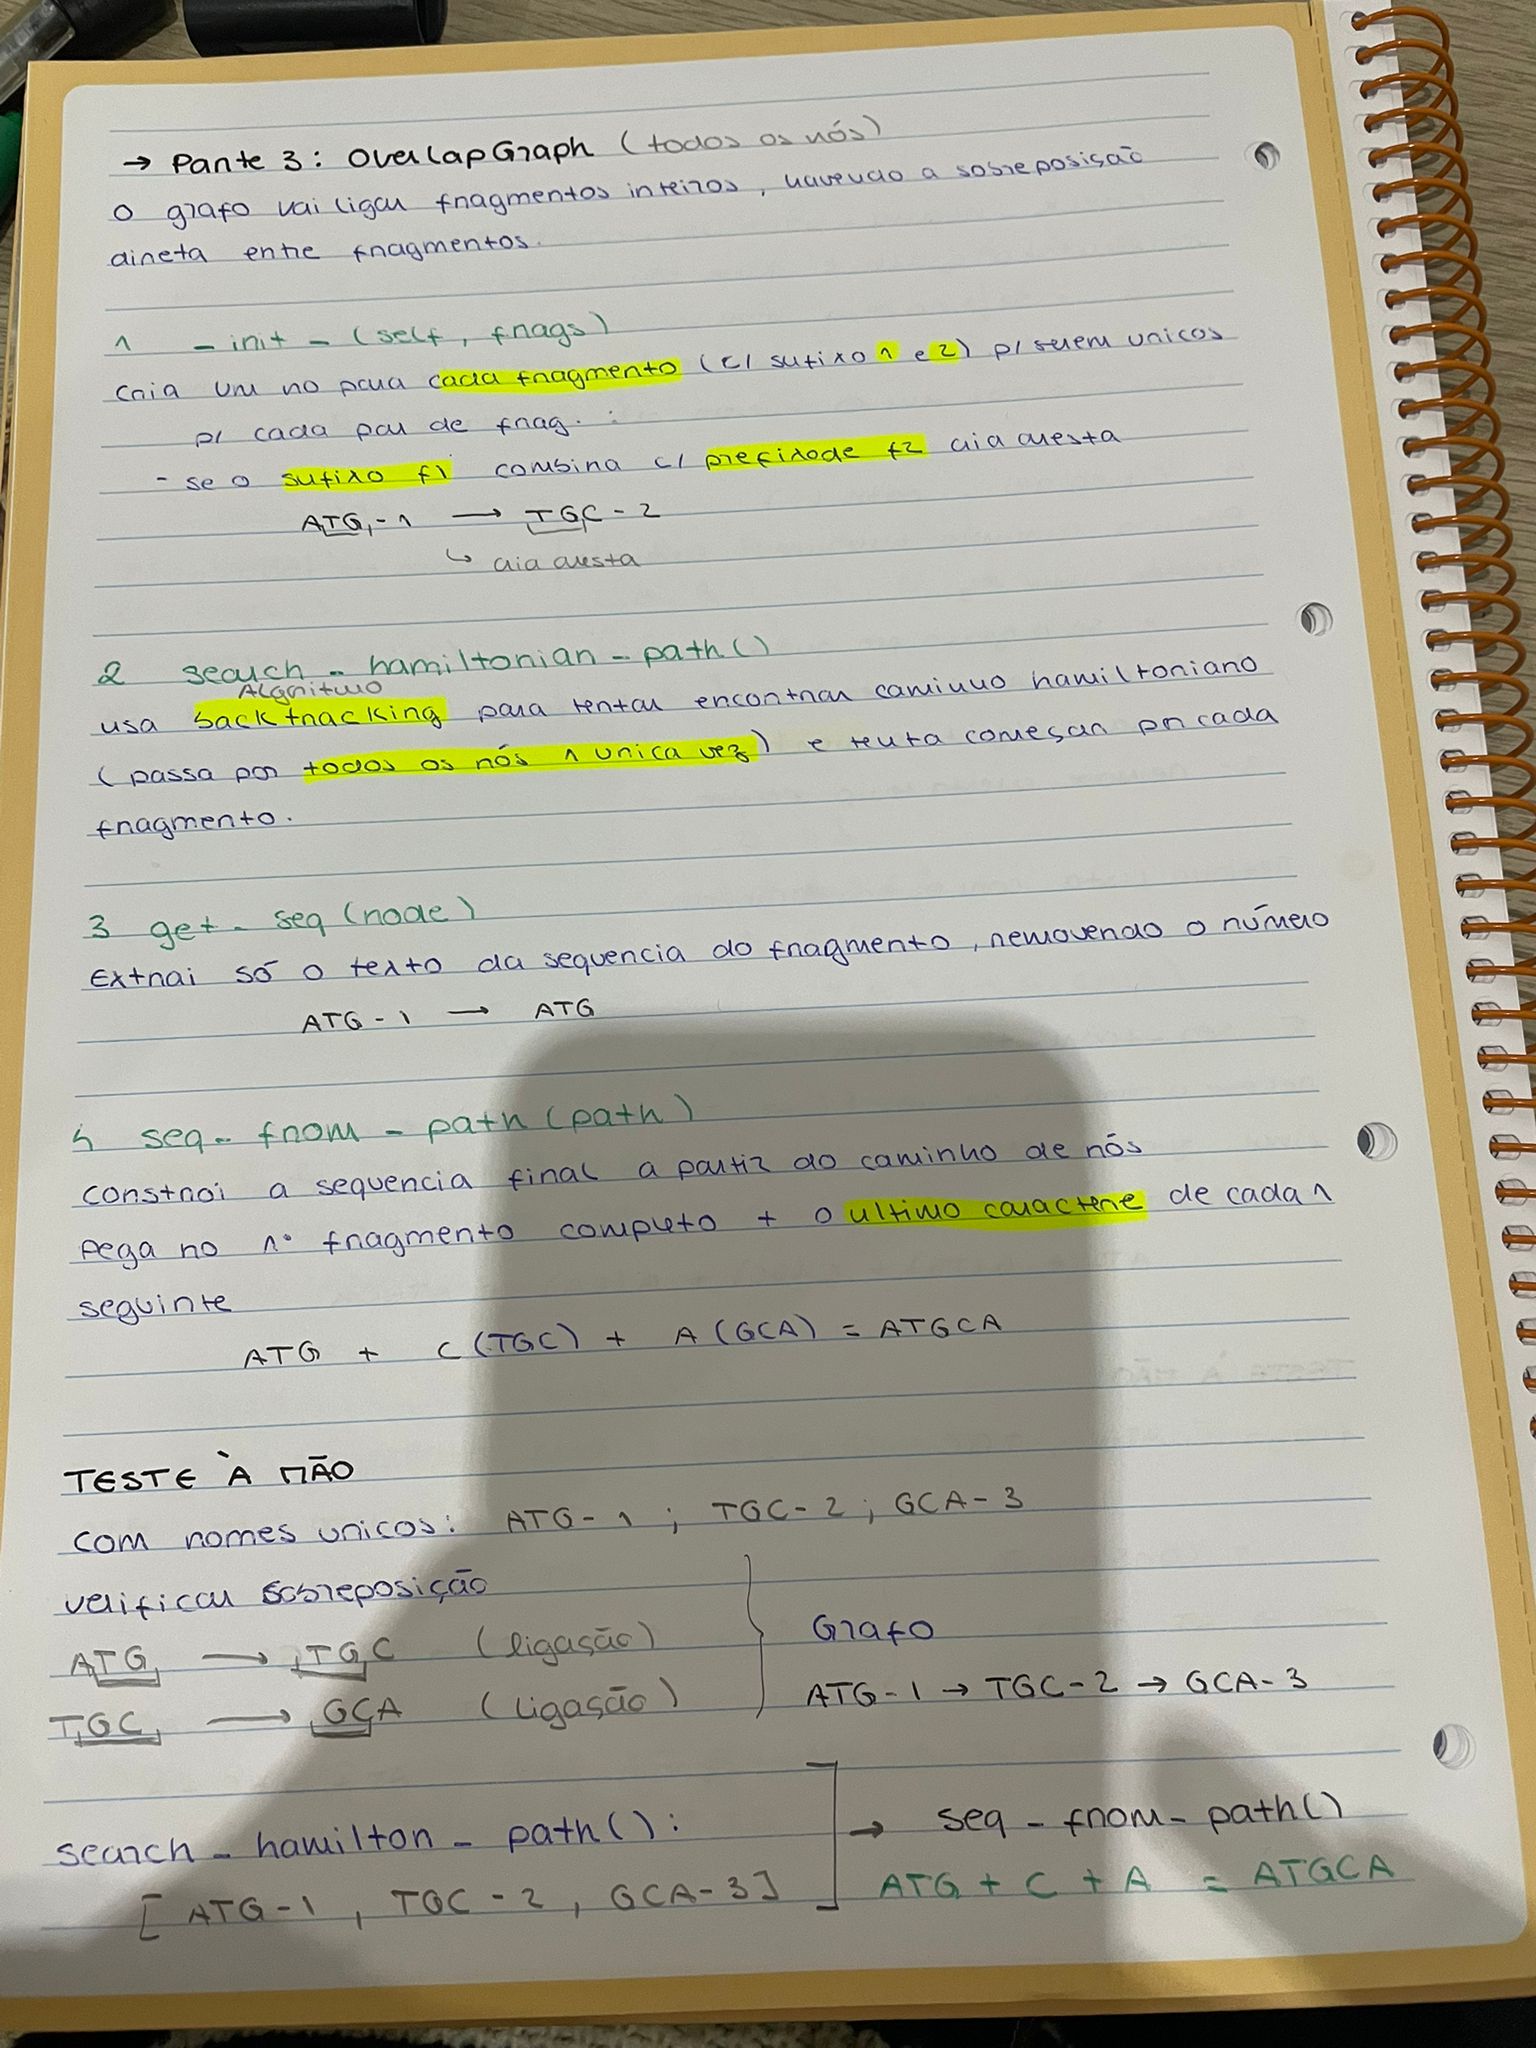 → Parte 3: OverlapGraph (todos os nós)
O grafo vai ligar fragmentos inteiros, havendo a sobreposição
direta entre fragmentos.
1 _ init _ (self, frags)
Cria um no para cada fragmento (c/ sufixo 1 e 2) p/ serem unicos
p/ cada par de frag. :
- se o sufixo f1 combina c/ prefixo de f2 cria aresta
ATG-1 → TGC-2
↳ cria aresta
2 search _ hamiltonian _ path()
Algoritmo
usa backtracking para tentar encontrar caminho hamiltoniano
(passa por todos os nós 1 unica vez) e tenta começar por cada
fragmento.
3 get _ seq (node)
Extrai só o texto da sequencia do fragmento, removendo o número
ATG-1 → ATG
4 seq _ from _ path (path)
constroi a sequencia final a partir do caminho de nós
Pega no 1º fragmento completo + o ultimo caractere de cada 1
seguinte
ATG + C (TGC) + A (GCA) = ATGCA
TESTE À MÃO
Com nomes unicos: ATG-1 ; TGC-2 ; GCA-3
verificar sobreposição
ATG → TGC (ligação)
TGC → GCA (ligação)
Grafo
ATG-1 → TGC-2 → GCA-3
search _ hamilton _ path():
[ATG-1, TGC-2, GCA-3]
→ seq _ from _ path()
ATG + C + A = ATGCA